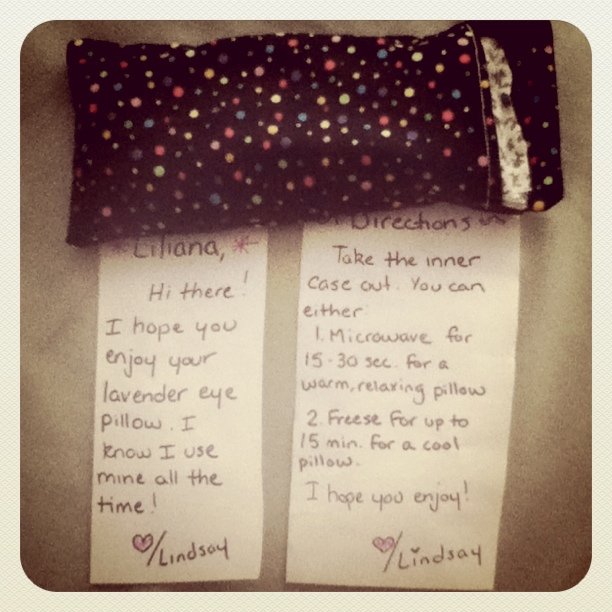 Liliana,
Hi there!
I hope you
enjoy your
lavender eye
pillow. I
know I use
mine all the
time!
♡/Lindsay
Directions
Take the inner
case out. You can
either
1. Microwave for
15-30 sec. for a
warm, relaxing pillow
2. Freese for up to
15 min. for a cool
pillow.
I hope you enjoy!
♡/Lindsay